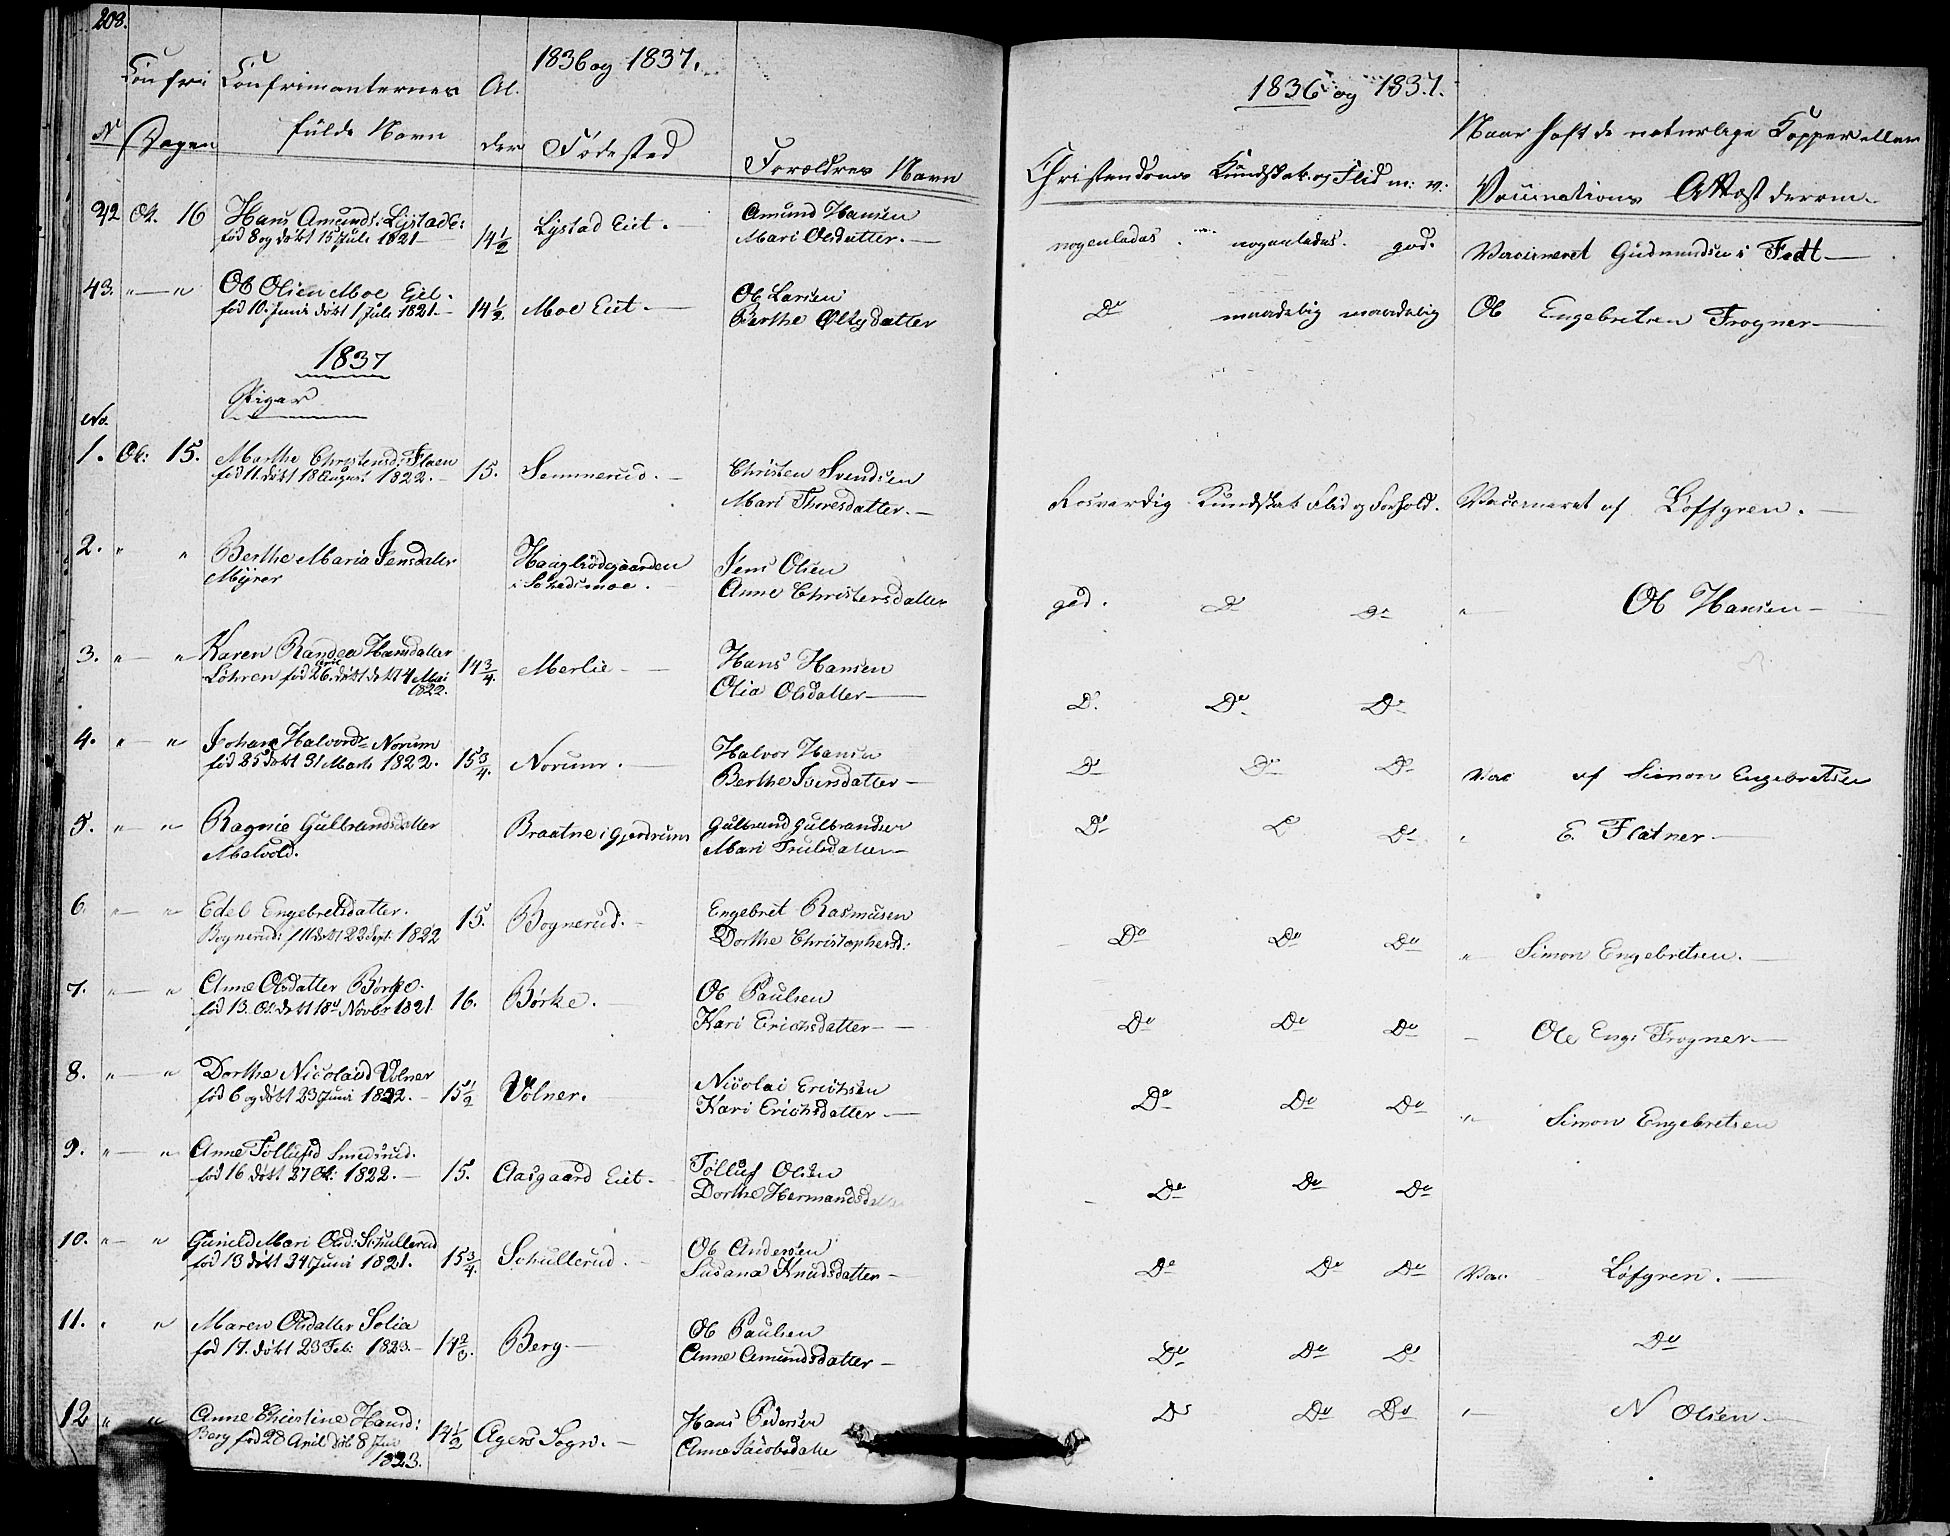 208.
1836 og 1837.
Confir Confirmanternes Al.
N Dagen fulde Navn der Fødested Forældres Navn
42 Ok. 16 Hans Amunds: Lystade: 14 1/2 Lystad Eiet. Amund Hansen
fød 8 og døbt 15 Juli 1821 Mari Olsdatter.
43. " — " Ole Olsen Moe Eje. 14 1/2 Moe Eiet. Ole Larsen
fød 10. Juni døbt 1 Juli 1821. Berthe
1837
Piger
No.
1. Ok: 15. Marthe Christensd: Flaen 15. Semmerud. Christen Svendsen
fød 11. døbt 18 August 1822. Mari Thoresdatter.
2. " " Berthe Maria Jensdatter Jens Olsen
Myrer Anne Christensdatter
3. " — " Karen Randea Hansdatter 14 3/4 Merlie Hans Hansen
Løhren fød 26. døbt 4 Mai Olia Olsdatter
1822.
4. " — " Johane Halvords Norum 15 3/4. Norum. Halvor Hansen
fød 25 døbt 31 Marts 1822. Berthe Iversdatter
5. " — " Ragnie Gulbrandsdatter Braatne i Gjerdrum Gulbrand Gulbrandsen
Melvold. Mari Trulsdatter
6. " — " Edel Engebretsdatter. 15. Bognerud. Engebret Rasmusen
Bognerud: f 11 døbt 22 Sept: 1822 Dorthe Christophersd:
7. " — " Anne Olsdatter Børke. 16. Børke. Ole Paulsen
fød 13. Ok. døbt 18 Novbr 1821 Kari Erichsdatter
8. " — " Dorthe Nicolaisd Volner 15 1/2 Volner. Nicolai Erichsen
fød 6 og døbt 23 Juni 1822. Kari Erichsdatter
9. " — " Anne Tøllufsd Smedsrud. 15. Aasgaard Eiet. Tølluf Olsen
fød 16 døbt 27 Ok: 1822. Dorthe Hermandsdatter
10. " — " Gunild Mari Olsd: Schullerud 15 3/4. Schullerud. Ole Andersen
fød 13 døbt 24 Juni 1821. Susana Knudsdatter
11. " " Maren Olsdatter Solia 14 2/3. Berg. Ole Paulsen
fød 17. døbt 23 Feb: 1823. Anne Amundsdatter
12 " " Anne Christine Hansd: 14 1/2 Agers Sogn. Hans Pedersen
Berg fød 28 April døb: 8 Juni Anne Jacobsdatter
1823.
1836 og 1837.
Christendoms Kundskab og Flid m: v. Naar haft de naturlige Kopper eller
Vaccinations Attest derom.
nogenledes nogenledes god. Vaccineret Gudmundsen i Fedt
Do maadelig maadelig Ole Engebretsen Frogner
Rosværdig Kundskab Flid og Forhold. Vaccineret af Løffgren.
god. Do Do " Ole Hansen
Do Do Do
Do Do Do Vac af Simon Engebretsen
Do Do Do " E. Flatner
Do Do Do " Simon Engebretsen.
Do Do Do Ole Eng: Frogner
Do Do Do " Simon Engebretsen
Do Do Do
Do Do Do Vac Løfgren.
Do Do Do Do
Do Do Do " N Olsen